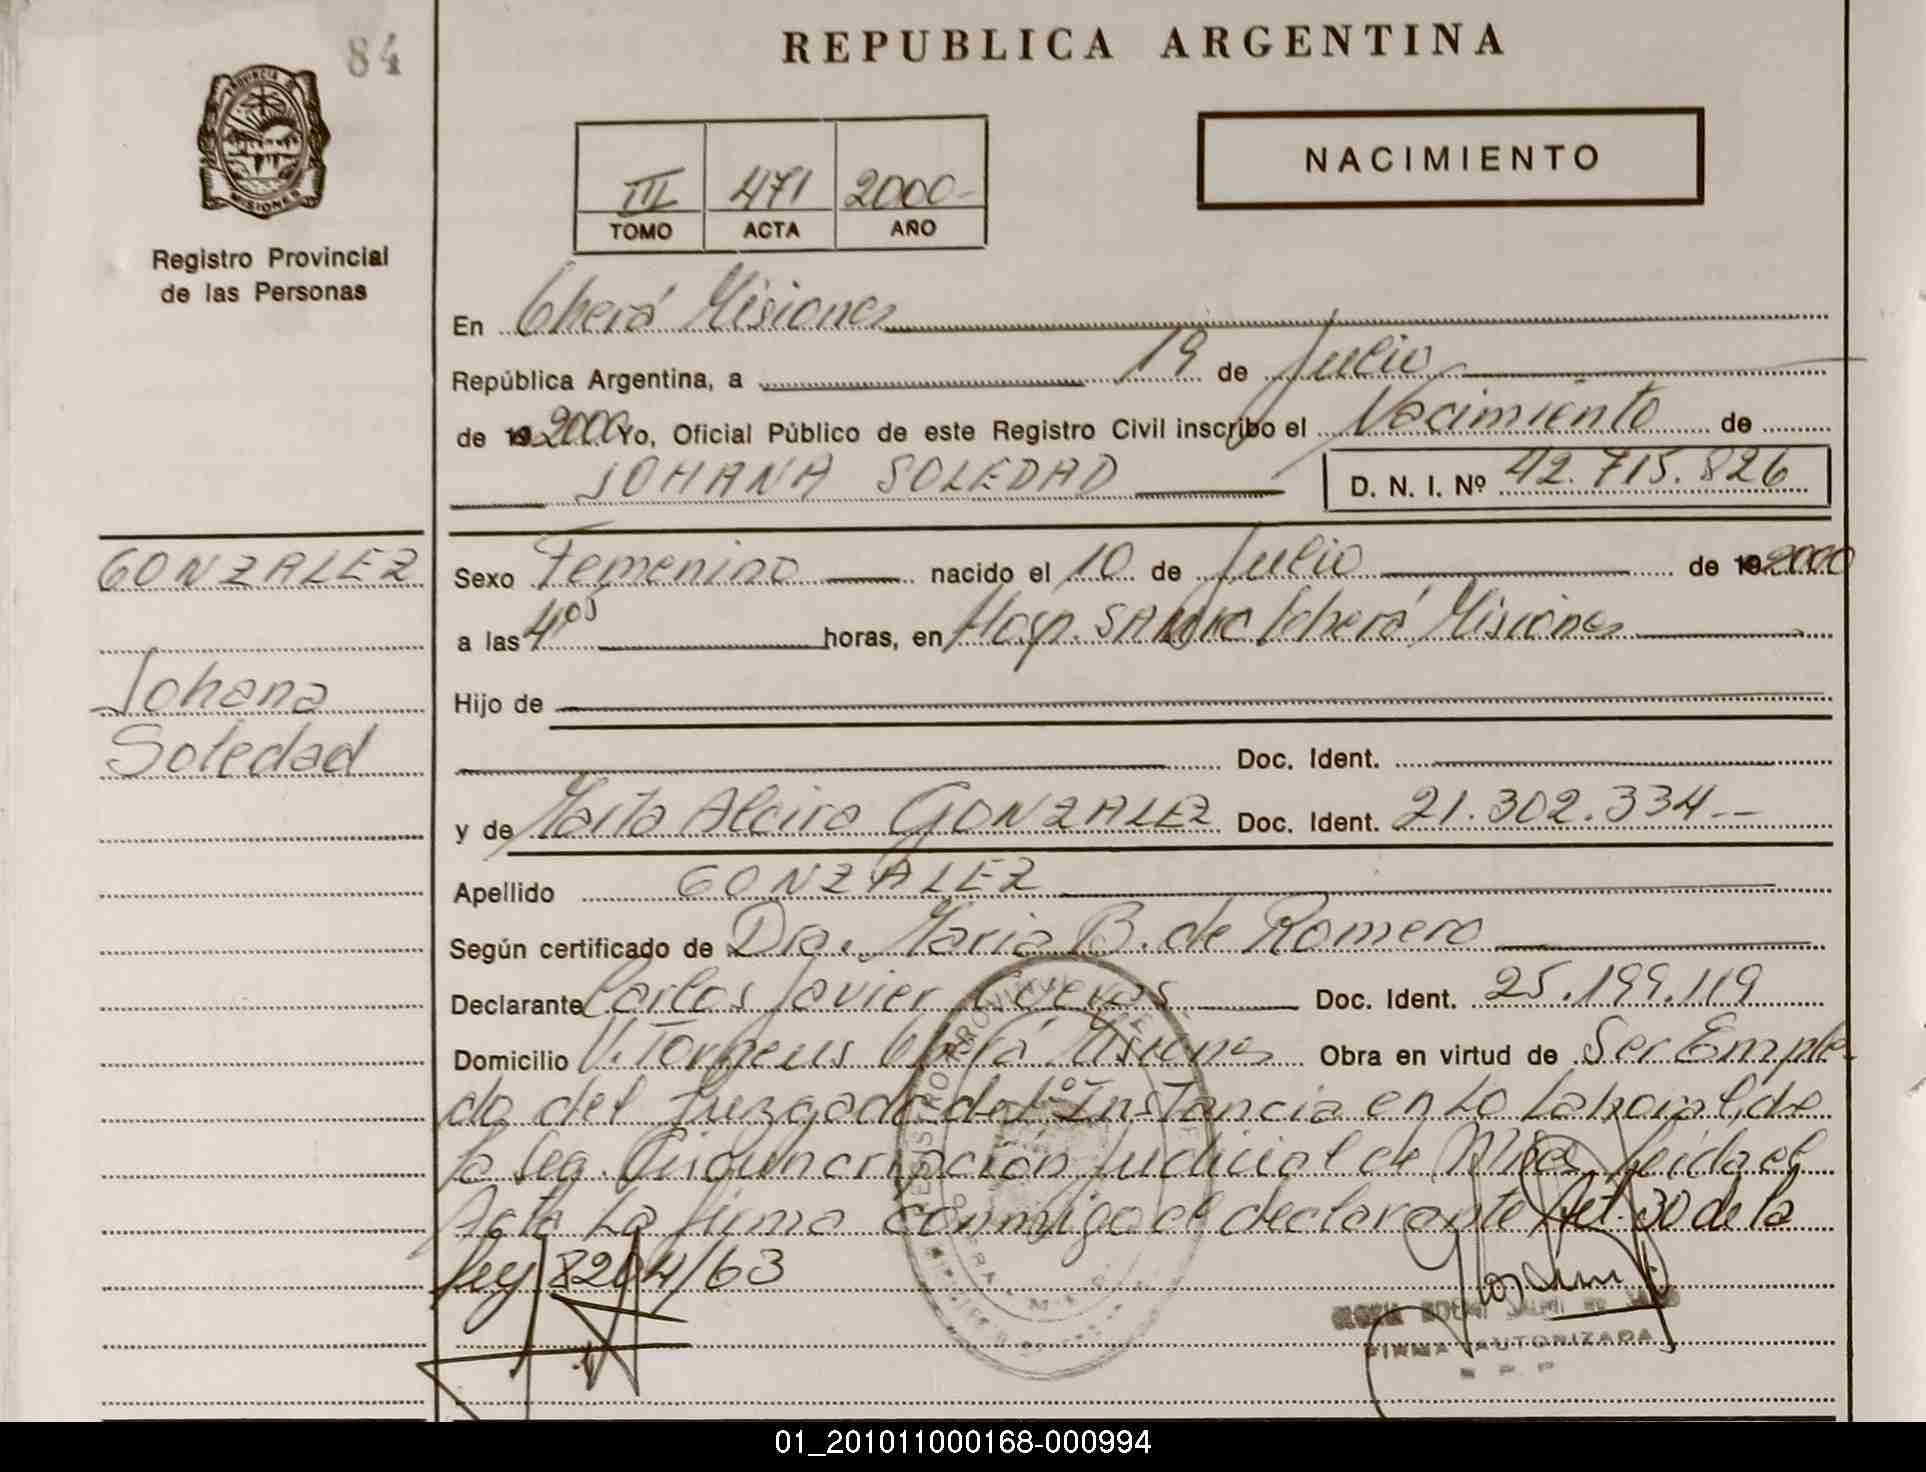 84
REPUBLICA ARGENTINA
PROVINCIA DE
MISIONES
Registro Provincial
de las Personas
III 471 2000-
TOMO ACTA AÑO
NACIMIENTO
En Oberá Misiones
República Argentina, a 19 de Julio
de 19 2000 Yo, Oficial Público de este Registro Civil inscribo el Nacimiento de
JOHANA SOLEDAD D. N. I. Nº 42.715.826
GONZALEZ
Johana
Soledad
Sexo Femenino nacido el 10 de Julio de 19 2000
a las 4:05 horas, en Hosp. SAMIC Oberá Misiones
Hijo de
Doc. Ident.
y de Marta Alcira GONZALEZ Doc. Ident. 21.302.334--
Apellido GONZALEZ
Según certificado de Dra. Maria B. de Romero
Declarante Carlos Javier Cuevas Doc. Ident. 25.199.119
Domicilio V. Oberá Misiones Obra en virtud de Ser Emplea
do del Juzgado de 1º Instancia en Lo Laboral, de
la Seg. Judicial de Mnes. Leida el
Acta La firma conmigo el declarante Art. 30 de la
Ley 8204/63
FIRMA AUTORIZADA
R. P. P.
01_201011000168-000994